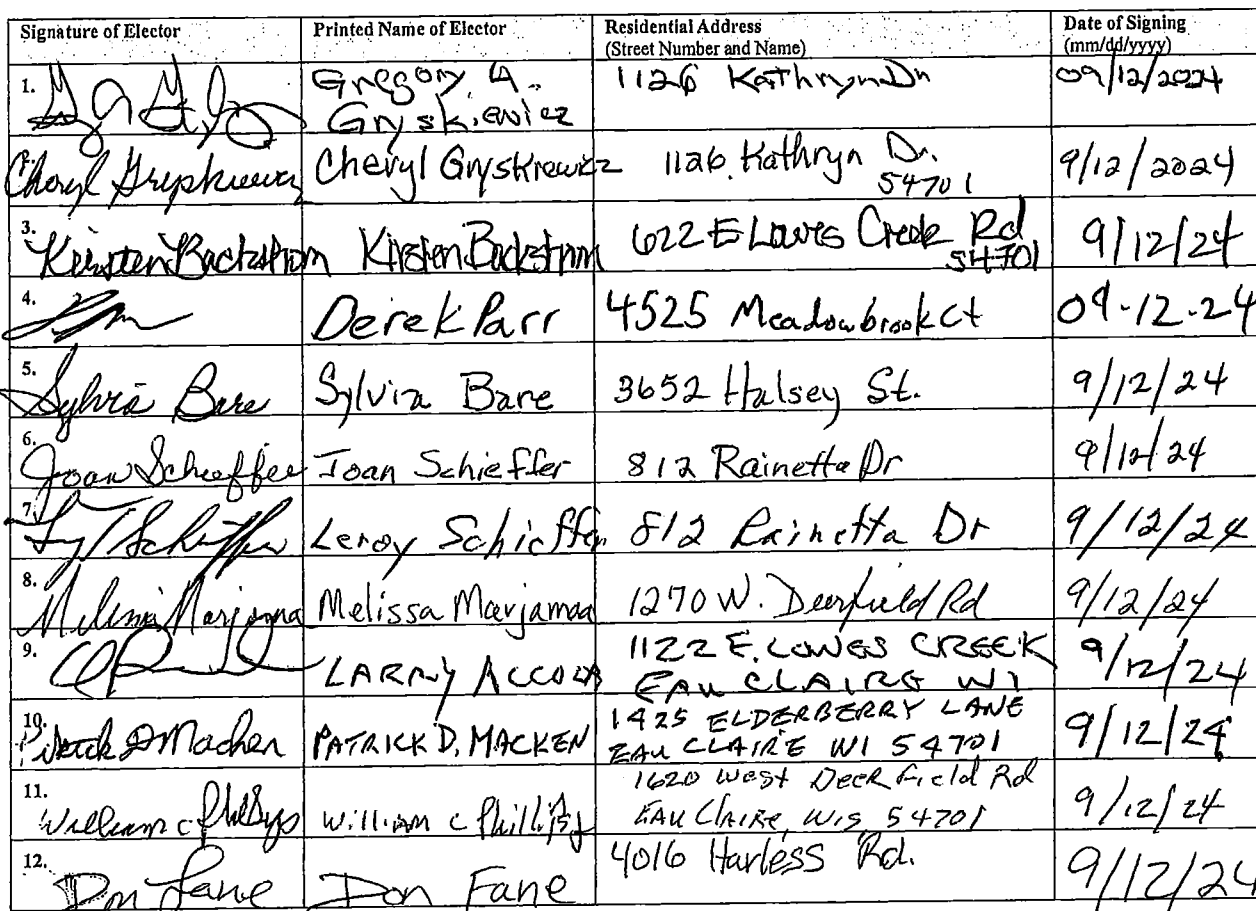 Signature of Elector Printed Name of Elector Residential Address (Street Number and Name) Date of Signing (mm/dd/yyyy)
1. Gregory A. Gryskiewicz 1126 Kathryn Dr 09/12/2024
Cheryl Gryskiewicz Cheryl Gryskiewicz 1126 Kathryn Dr. 54701 9/12/2024
3. Kirsten Backstrom Kirsten Backstrom 622 E Lowes Creek Rd 54701 9/12/24
4. Derek Parr 4525 Meadowbrook Ct 09-12-24
5. Sylvia Bare Sylvia Bare 3652 Halsey St. 9/12/24
6. Joan Schieffer Joan Schieffer 812 Rainetta Dr 9/12/24
7. Leroy Schieffer 812 Rainetta Dr 9/12/24
8. Melissa Marjamaa Melissa Marjamaa 1270 W. Deerfield Rd 9/12/24
9. LARRY ACCOLA 1122 E. LOWES CREEK EAU CLAIRE WI 9/12/24
10. Patrick D Macken PATRICK D. MACKEN 1425 ELDERBERRY LANE EAU CLAIRE WI 54701 9/12/24
11. William C Phillips William C Phillips 1620 West Deerfield Rd EAU Claire, Wis 54701 9/12/24
12. Don Fane Don Fane 4016 Harless Rd. 9/12/24